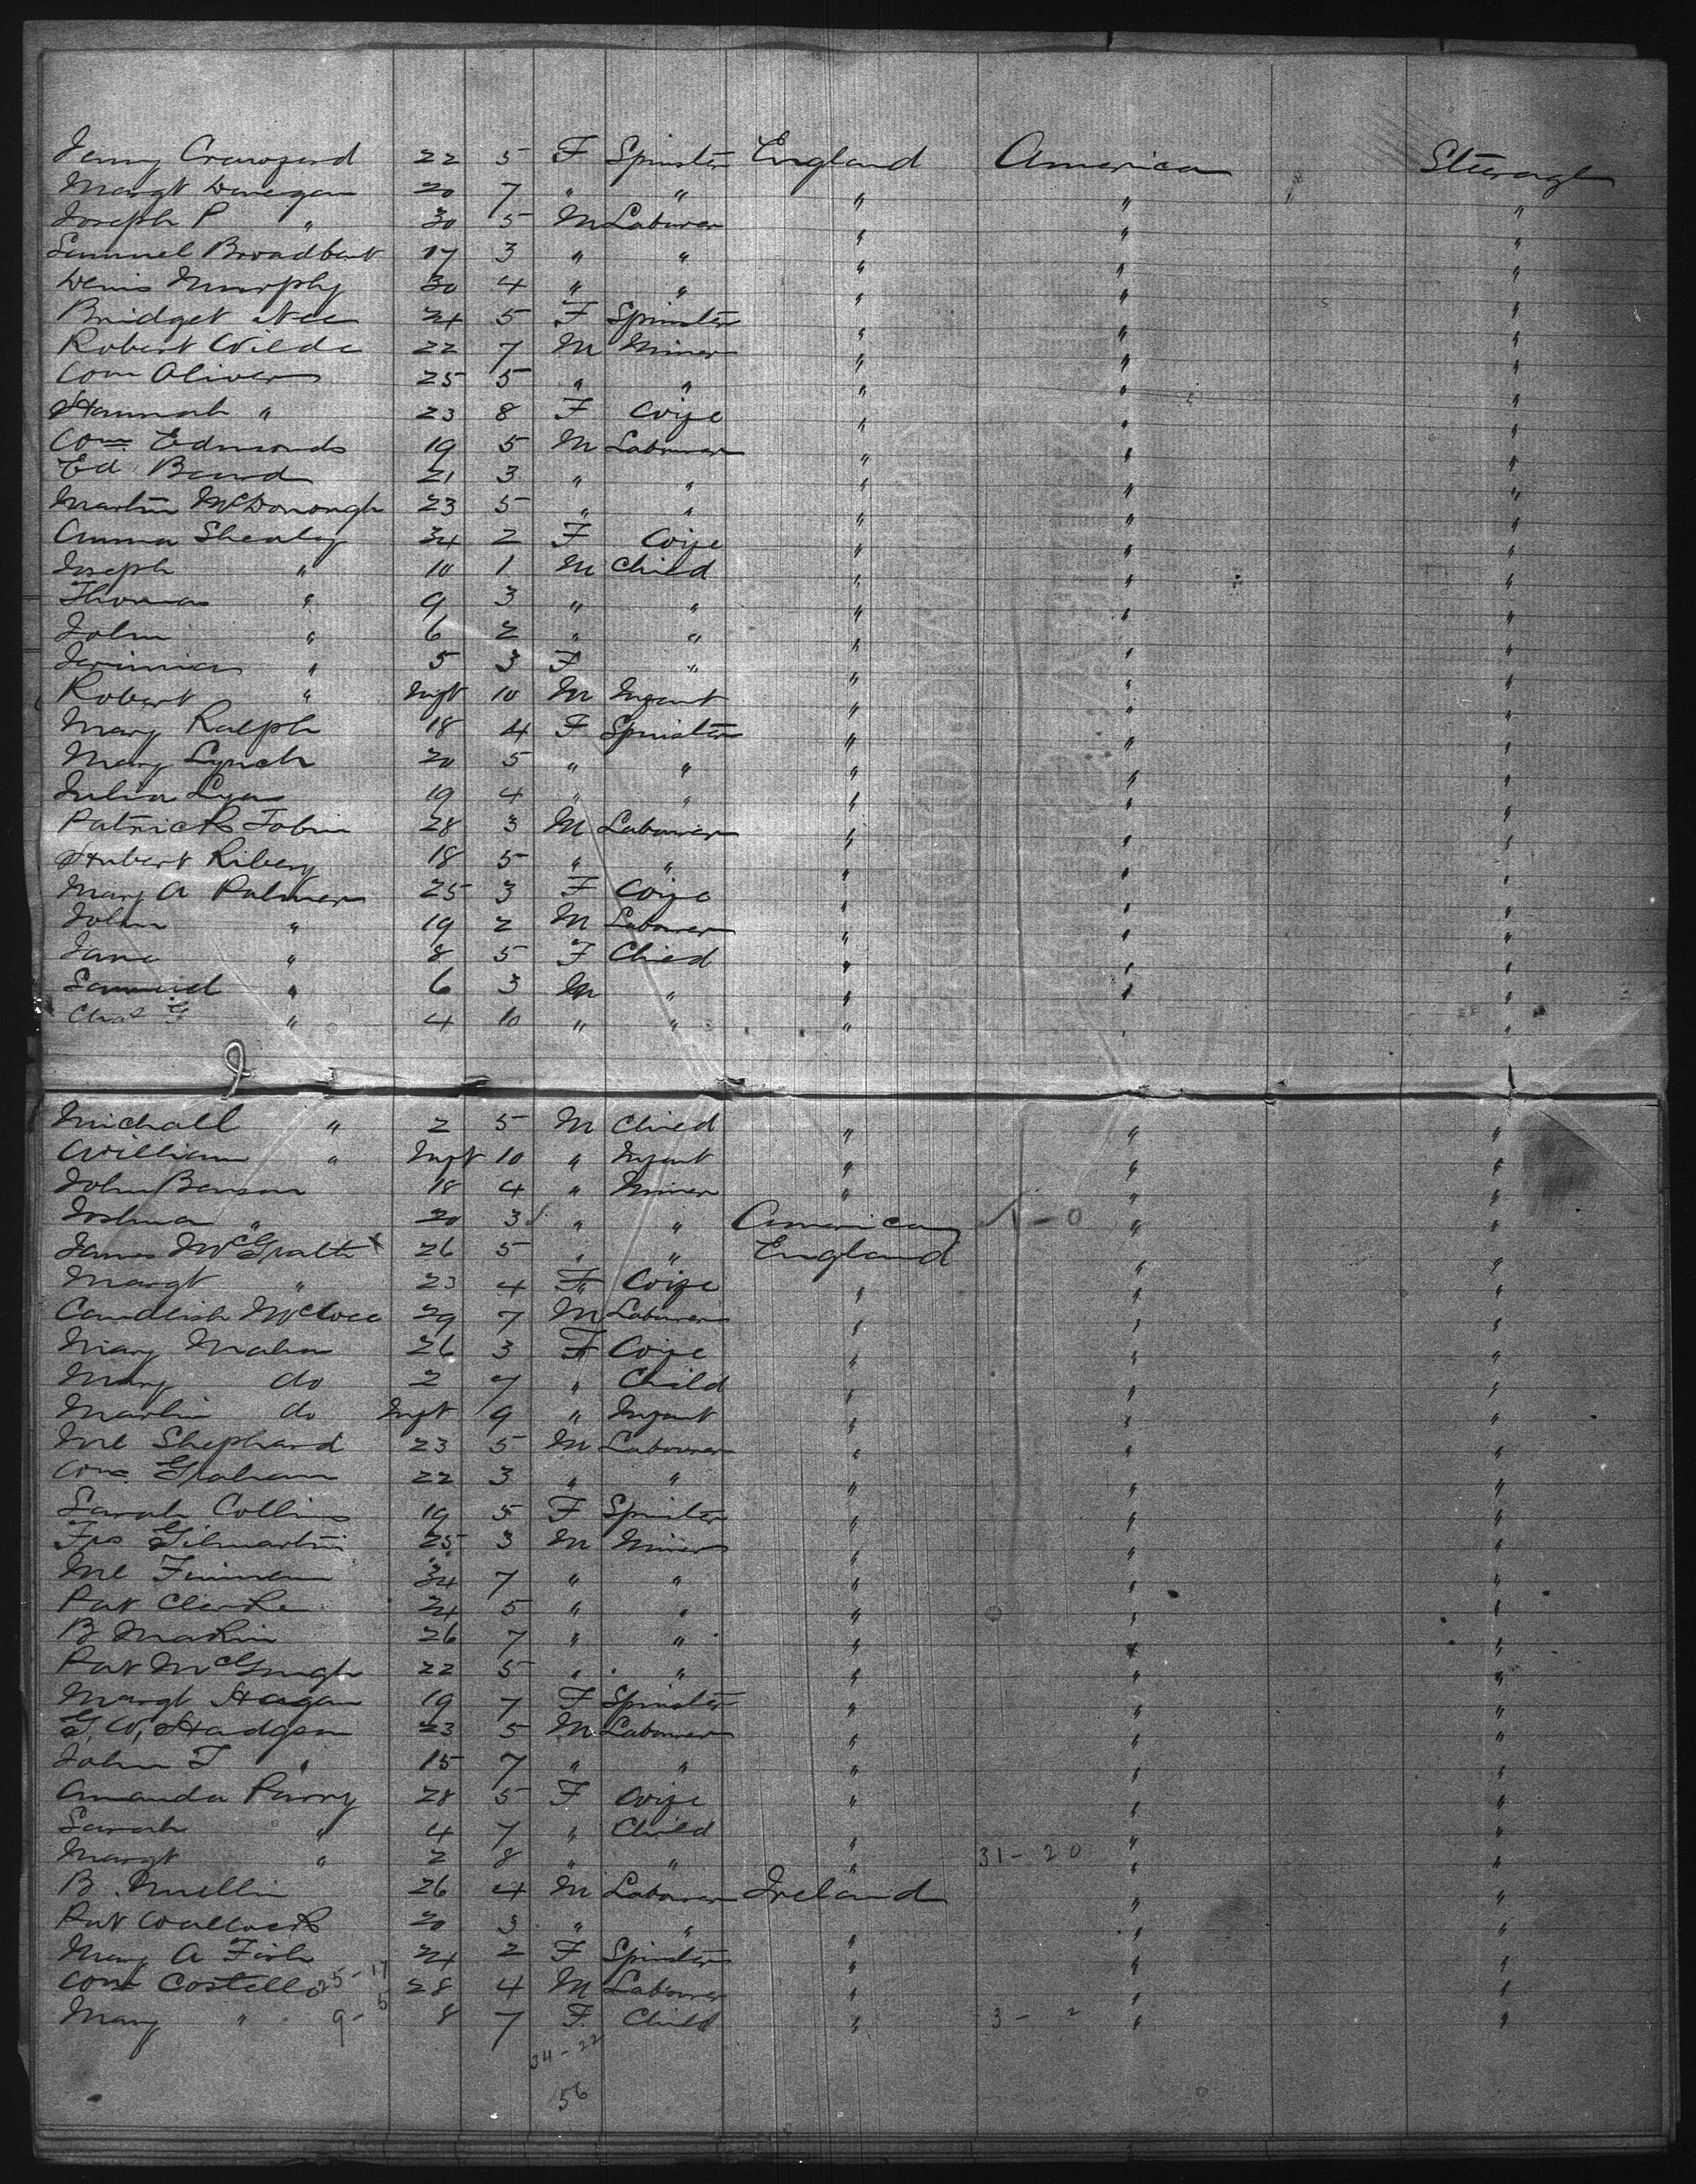 Jenny Crawford 22 5 F Spinster England America Steerage
Margt Donegan 20 7 " " " " "
Joseph P " 30 5 M Labourer " " "
Samuel Broadbent 17 3 " " " " "
Denis Murphy 30 4 " " " " "
Bridget Nee 24 5 F Spinster " " "
Robert Wilde 22 7 M Miner " " "
Wm Olivers 25 5 " " " " "
Hannah " 23 8 F Wife " " "
Wm Edmonds 19 5 M Labourer " " "
Ed 21 3 " " " " "
Martin McDonough 23 5 " " " " "
Emma 34 2 F Wife " " "
Joseph " 10 1 M Child " " "
Thomas " 9 3 " " " " "
John " 6 2 " " " " "
" 5 3 F " " " "
Robert " Inft 10 M Infant " " "
Mary Ralph 18 4 F Spinster " " "
Mary Lynch 20 5 " " " " "
Julia 19 4 " " " " "
Patrick Tobin 28 3 M Labourer " " "
Hubert 18 5 " " " " "
Mary A Palmer 25 3 F Wife " " "
John " 19 2 M Labourer " " "
Jane " 8 5 F Child " " "
Samuel " 6 3 M " " " "
Chas G " 4 10 " " " " "
Michall " 2 5 M Child " " "
William " Inft 10 " Infant " " "
John Benson 18 4 " Miner " " "
Joshua " 20 3 " " America 1 - 0 " "
James McGralt 26 5 " " England " "
Margt " 23 4 F Wife " " "
Candlish 29 7 M Labourer " " "
Mary Mahon 26 3 F Wife " " "
Mary do 2 7 " Child " " "
Martin do Inft 9 " Infant " " "
Ml Shephard 23 5 M Labourer " " "
Wm Graham 22 3 " " " " "
Sarah Collins 19 5 F Spinster " " "
Fрs Gilmartin 25 3 M Miner " " "
Ml Finnien 34 7 " " " " "
Pat Clarke 24 5 " " " " "
B Makin 26 7 " " " " "
Pat McGough 22 5 " " " " "
Margt Hagan 19 7 F Spinster " " "
G. W. Hadgson 23 5 M Labourer " " "
John T " 15 7 " " " " "
Amanda Parry 28 5 F Wife " " "
Sarah " 4 7 " Child " " "
Margt " 2 8 " " " 31 - 20 " "
B. Mullin 26 4 M Labourer Ireland " "
Pat 20 3 " " " " "
Mary A Fish 24 2 F Spinster " " "
Costello 25 - 17 28 4 M Labourer " " "
Mary " 9 - 5 8 7 F Child " 3 - 2 " "
34 - 22
56